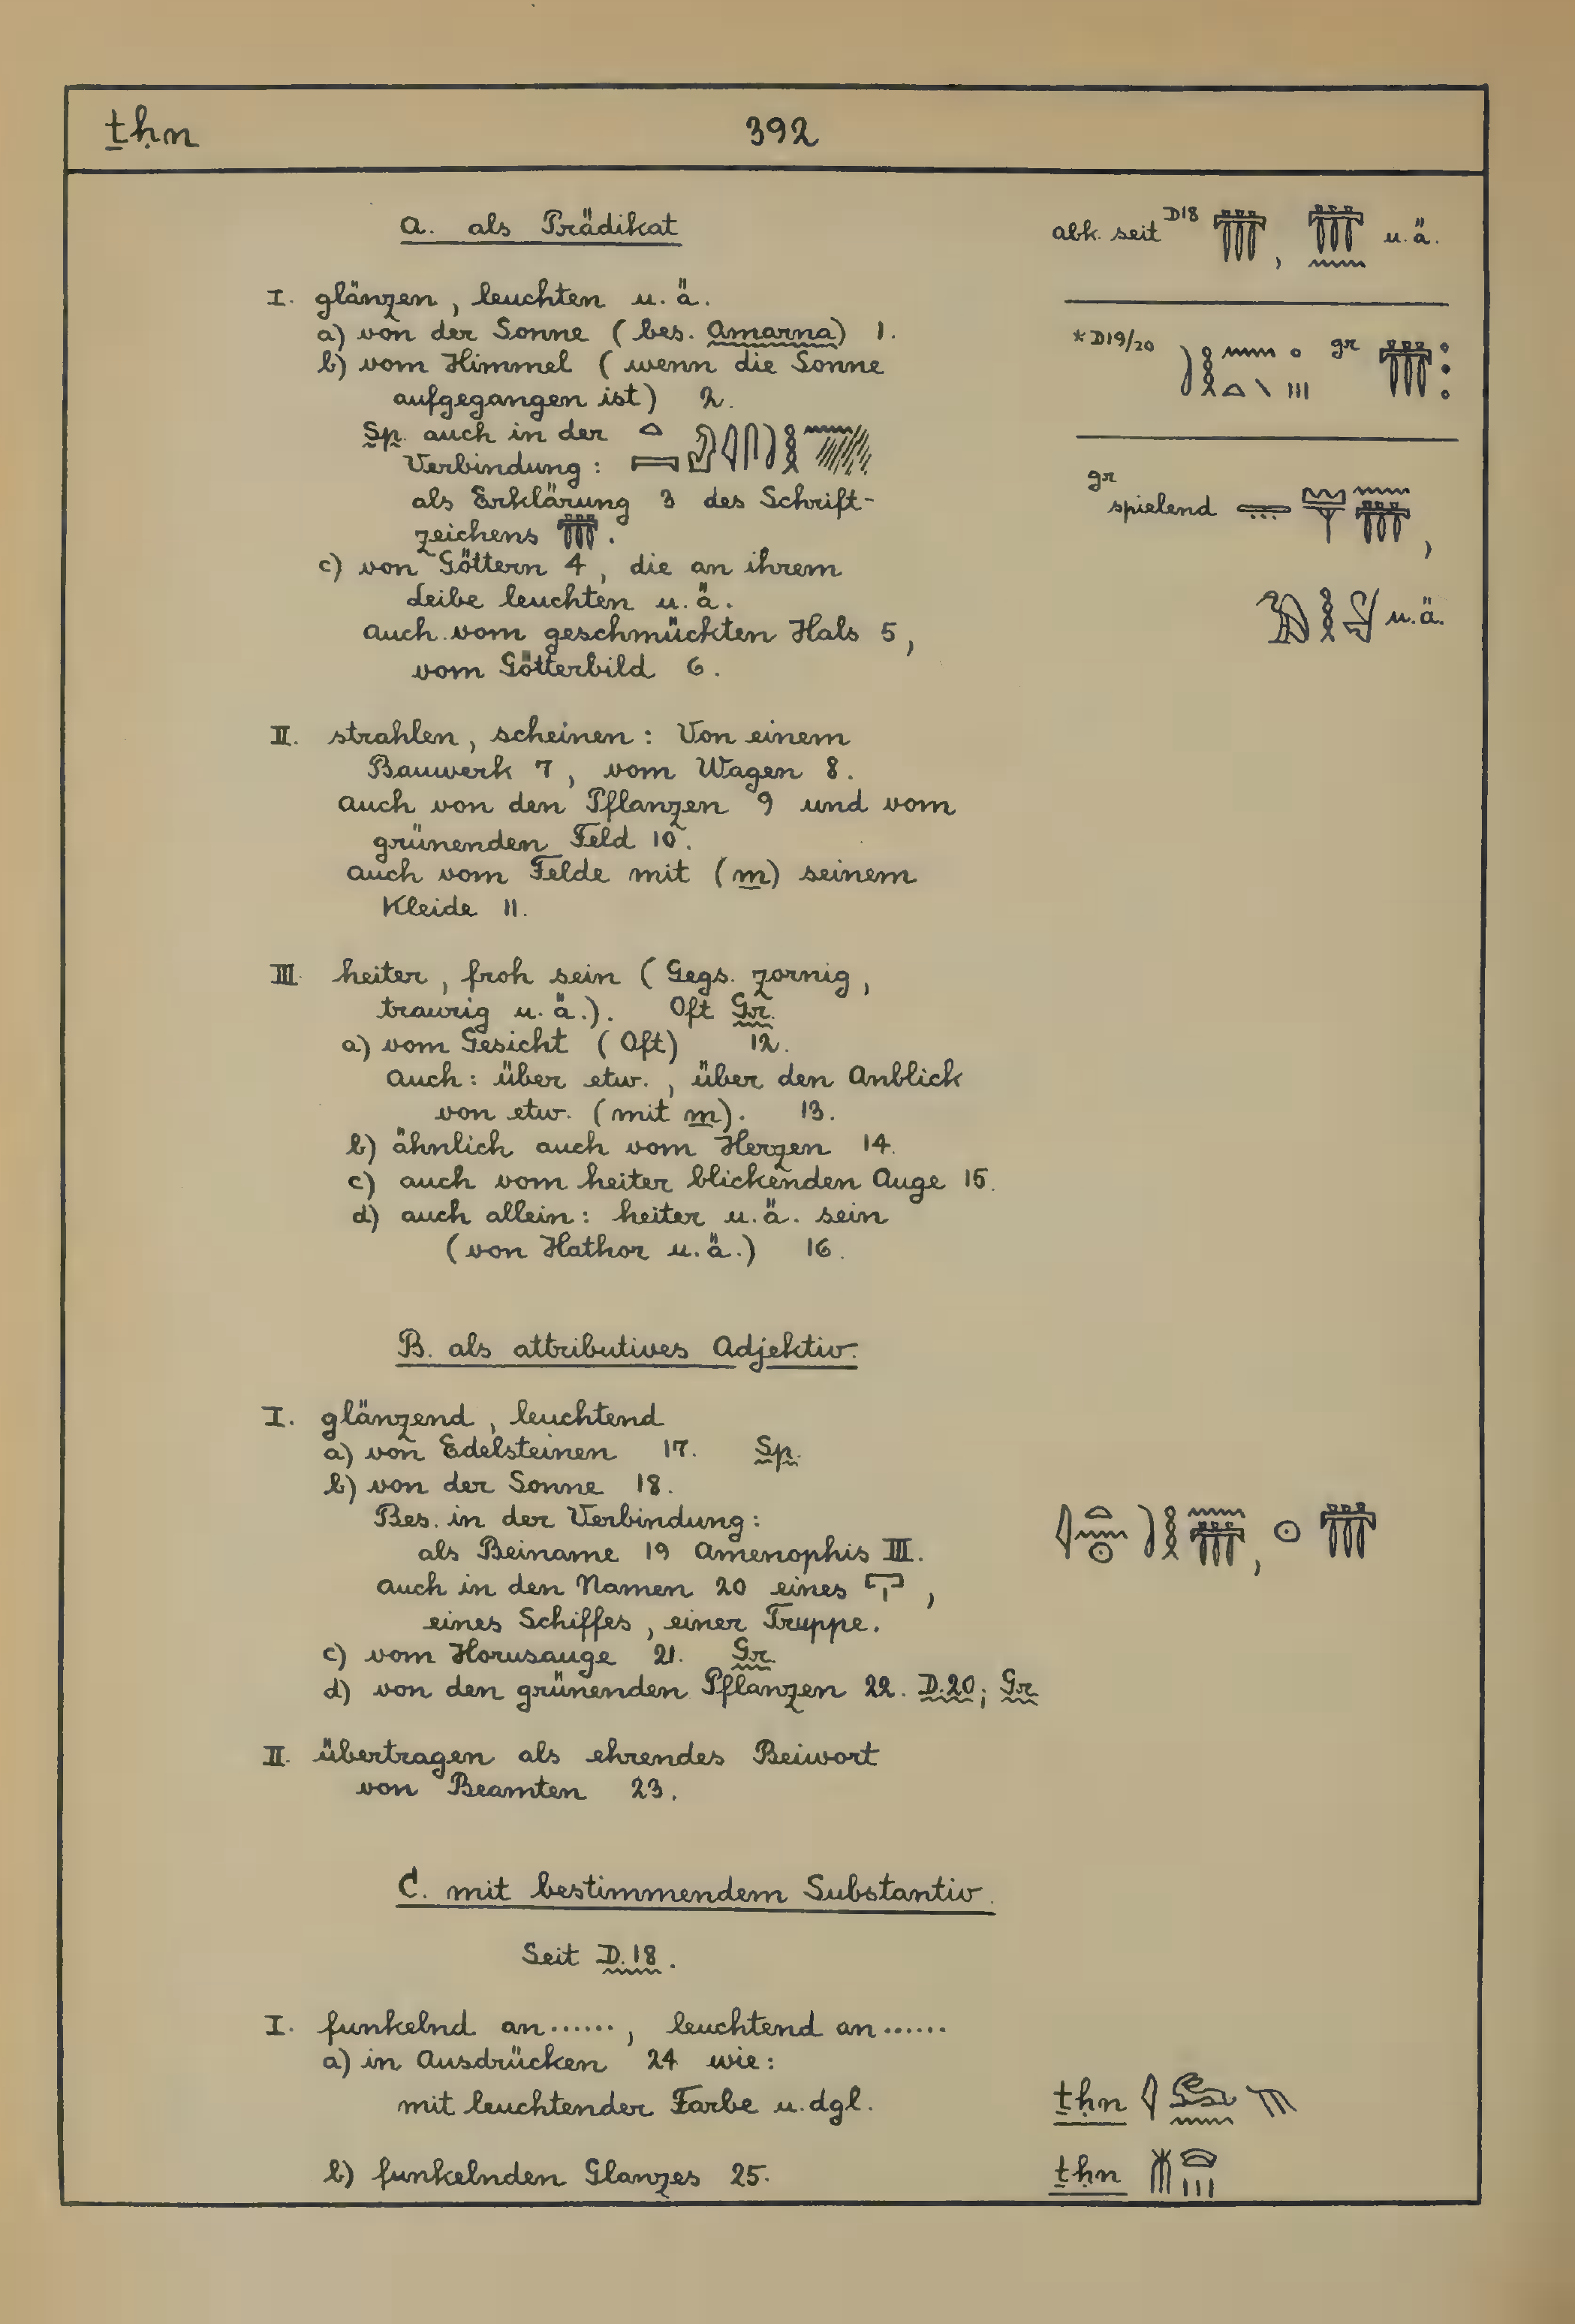 ṯḥn 392
A. als Prädikat
abk. seit D18 , u. ä.
I. glänzen, leuchten u. ä.
a) von der Sonne (bes. Amarna) 1.
*D19/20 gr
b) vom Himmel (wenn die Sonne
aufgegangen ist) 2.
Sp. auch in der
Verbindung:
als Erklärung 3 des Schrift-
zeichens .
gr
spielend ,
c) von Göttern 4, die an ihrem
Leibe leuchten u. ä.
u. ä.
auch vom geschmückten Hals 5,
vom Götterbild 6.
II. strahlen, scheinen: Von einem
Bauwerk 7, vom Wagen 8.
auch von den Pflanzen 9 und vom
grünenden Feld 10.
auch vom Felde mit (m) seinem
Kleide 11.
III heiter, froh sein (Gegs. zornig,
traurig u. ä.). Oft Gr.
a) vom Gesicht (Oft) 12.
auch: über etw., über den Anblick
von etw. (mit m). 13.
b) ähnlich auch vom Herzen 14.
c) auch vom heiter blickenden Auge 15.
d) auch allein: heiter u. ä. sein
(von Hathor u. ä.) 16.
B. als attributives Adjektiv.
I. glänzend, leuchtend
a) von Edelsteinen 17. Sp.
b) von der Sonne 18.
Bes. in der Verbindung:
als Beiname 19 Amenophis III.
auch in den Namen 20 eines ,
eines Schiffes, einer Truppe.
c) vom Horusauge 21. Gr.
d) von den grünenden Pflanzen 22. D.20; Gr
II. übertragen als ehrendes Beiwort
von Beamten 23.
C. mit bestimmendem Substantiv.
Seit D.18.
I. funkelnd an ......, leuchtend an ......
a) in Ausdrücken 24 wie:
mit leuchtender Farbe u. dgl. ṯḥn
b) funkelnden Glanzes 25. ṯḥn